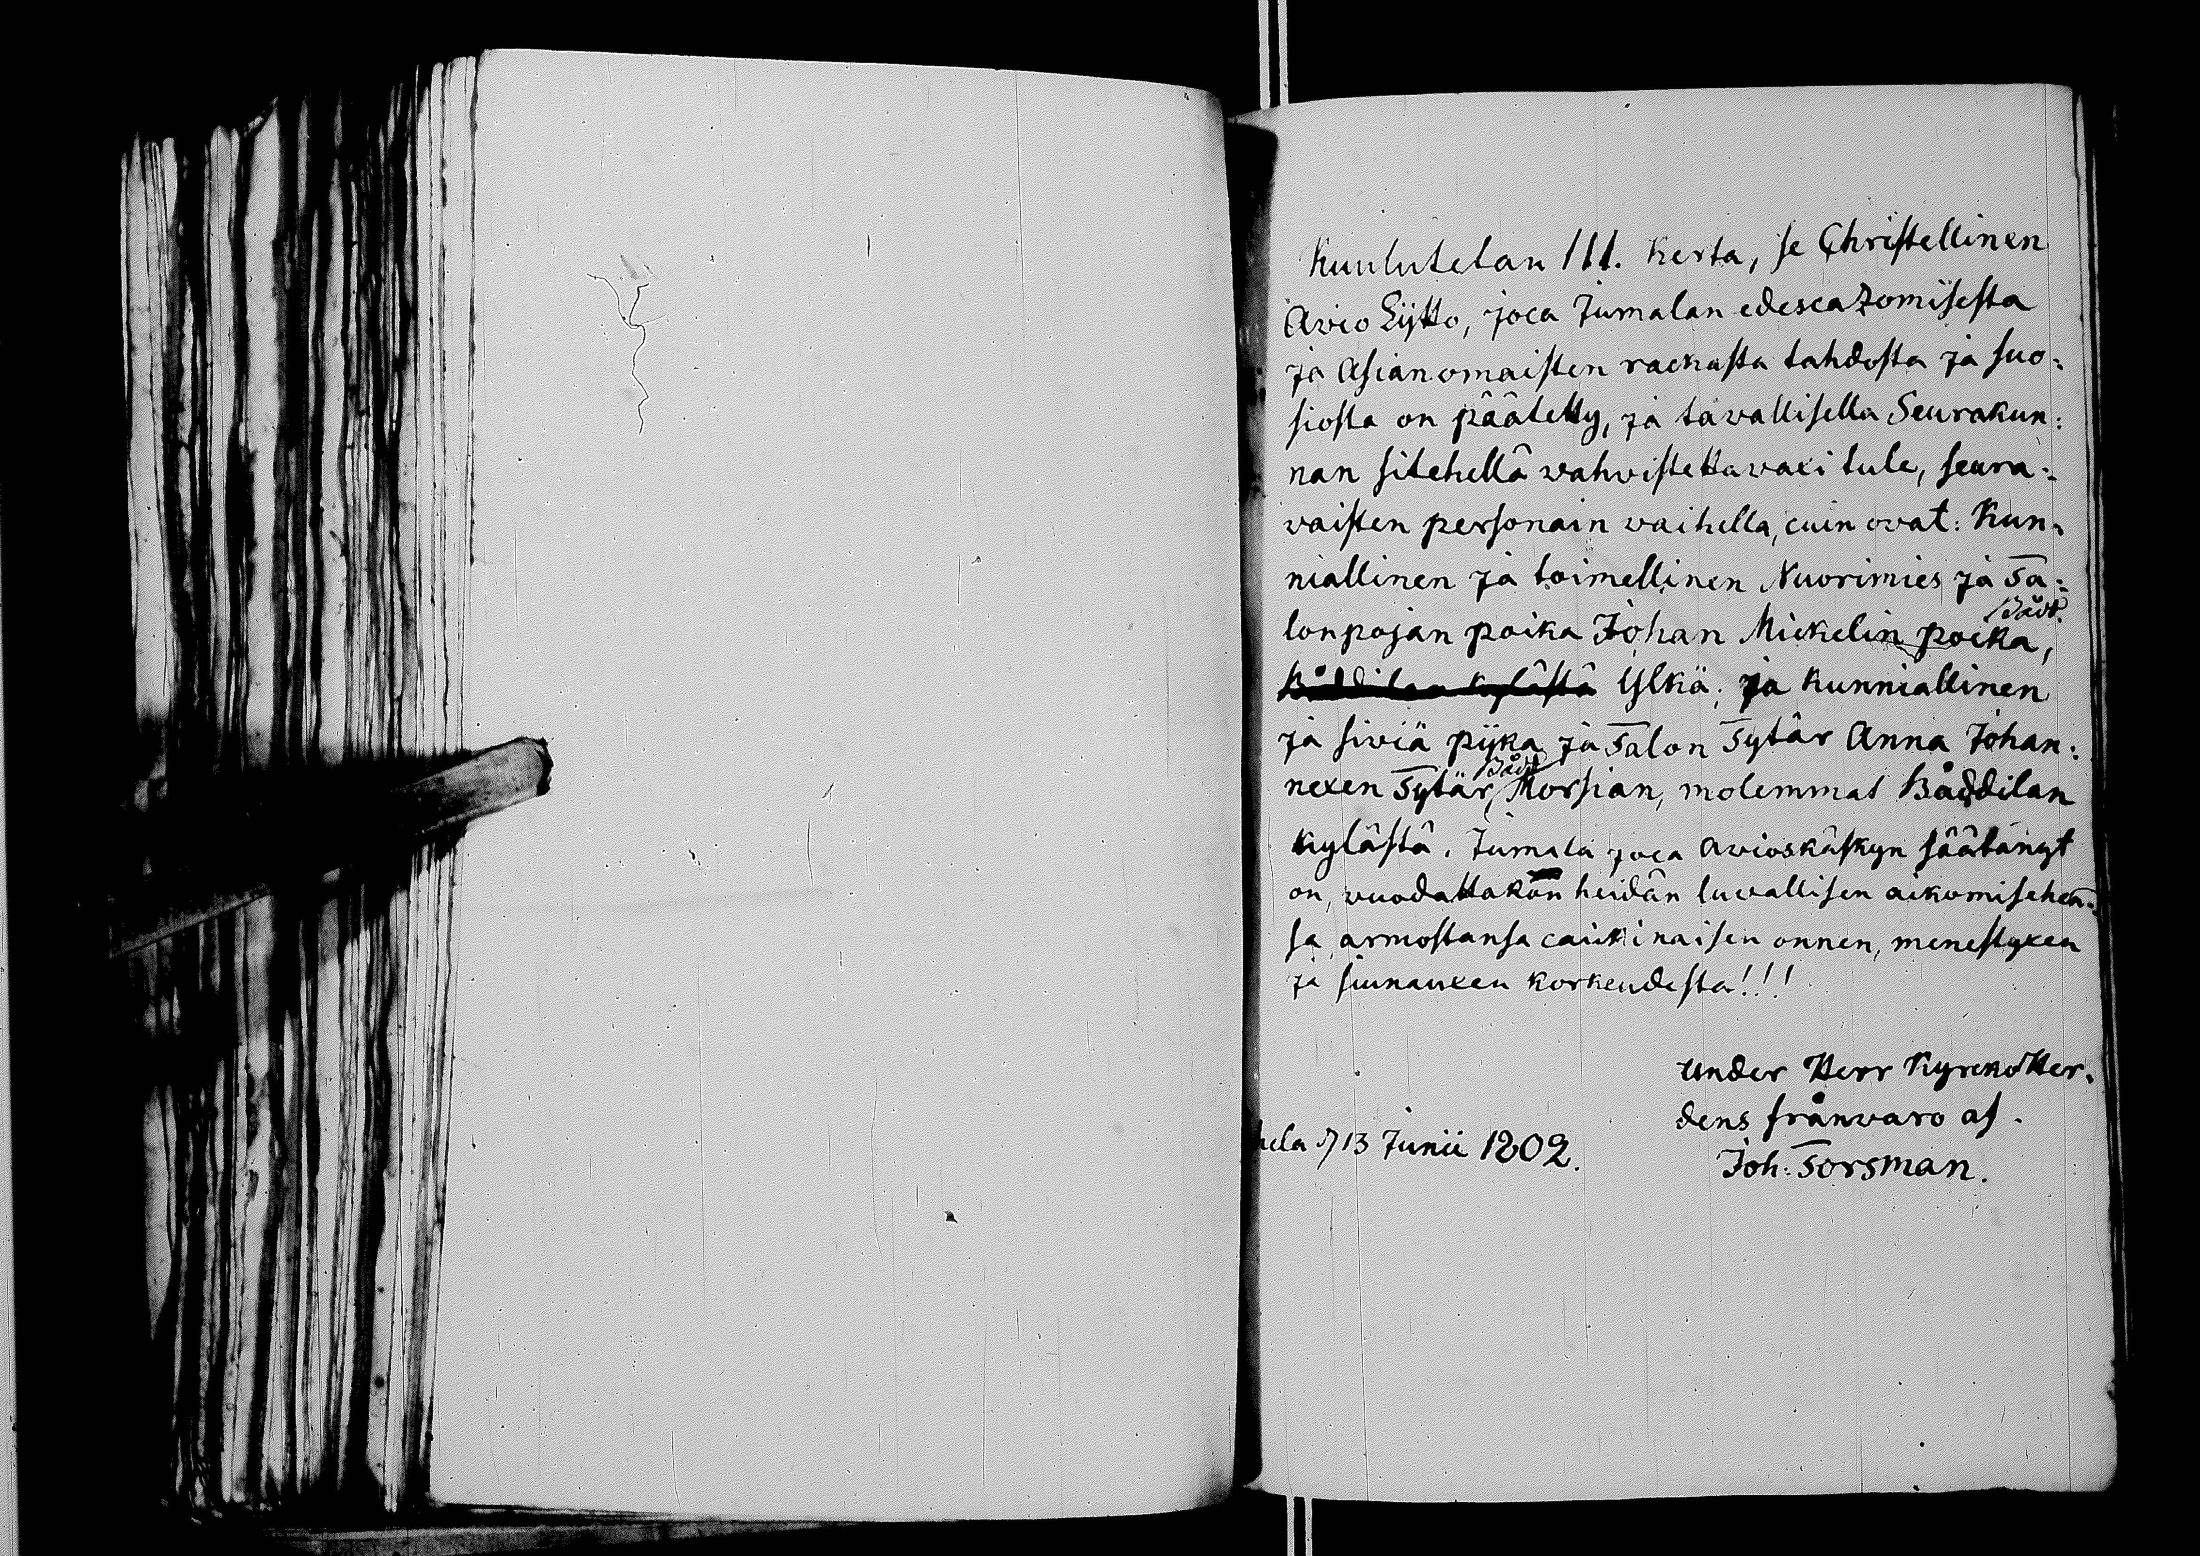 Kuulutetan III. Kerta, se Christellinen
Avio Lijtto, joca Jumalan edescazomisesta
ja Asianomaisten rackasta tahdosta ja suo:
siosta on päätetty, ja tavallisella Seurakun:
nan sitehellä wahwistettavaxi tule, seura:
vaisten personain waihella, cuin ovat: Kun:
niallinen ja toimellinen Nuorimies ja Ta:
lonpojan poika Johan Mickelin poika, Bådt.
Båddilan kylästä Ylkä; ja kunniallinen
ja siviä pijka ja Talon Tytär Anna Johan:
nexen Tytär, Bådt Morsian, molemmat Båddilan
kylästä. Jumala joca Avioskäskyn säätänyt
on, vuodattakon heidän luvallisen aikomisehen:
sa armostansa caickinaisen onnen, menestyxen
ja siunauxen korkeudesta!!!
under Herr Kyrckoher:
dens frånvaro af.
Joh: Forsman.
hela d 13 Junii 1802.